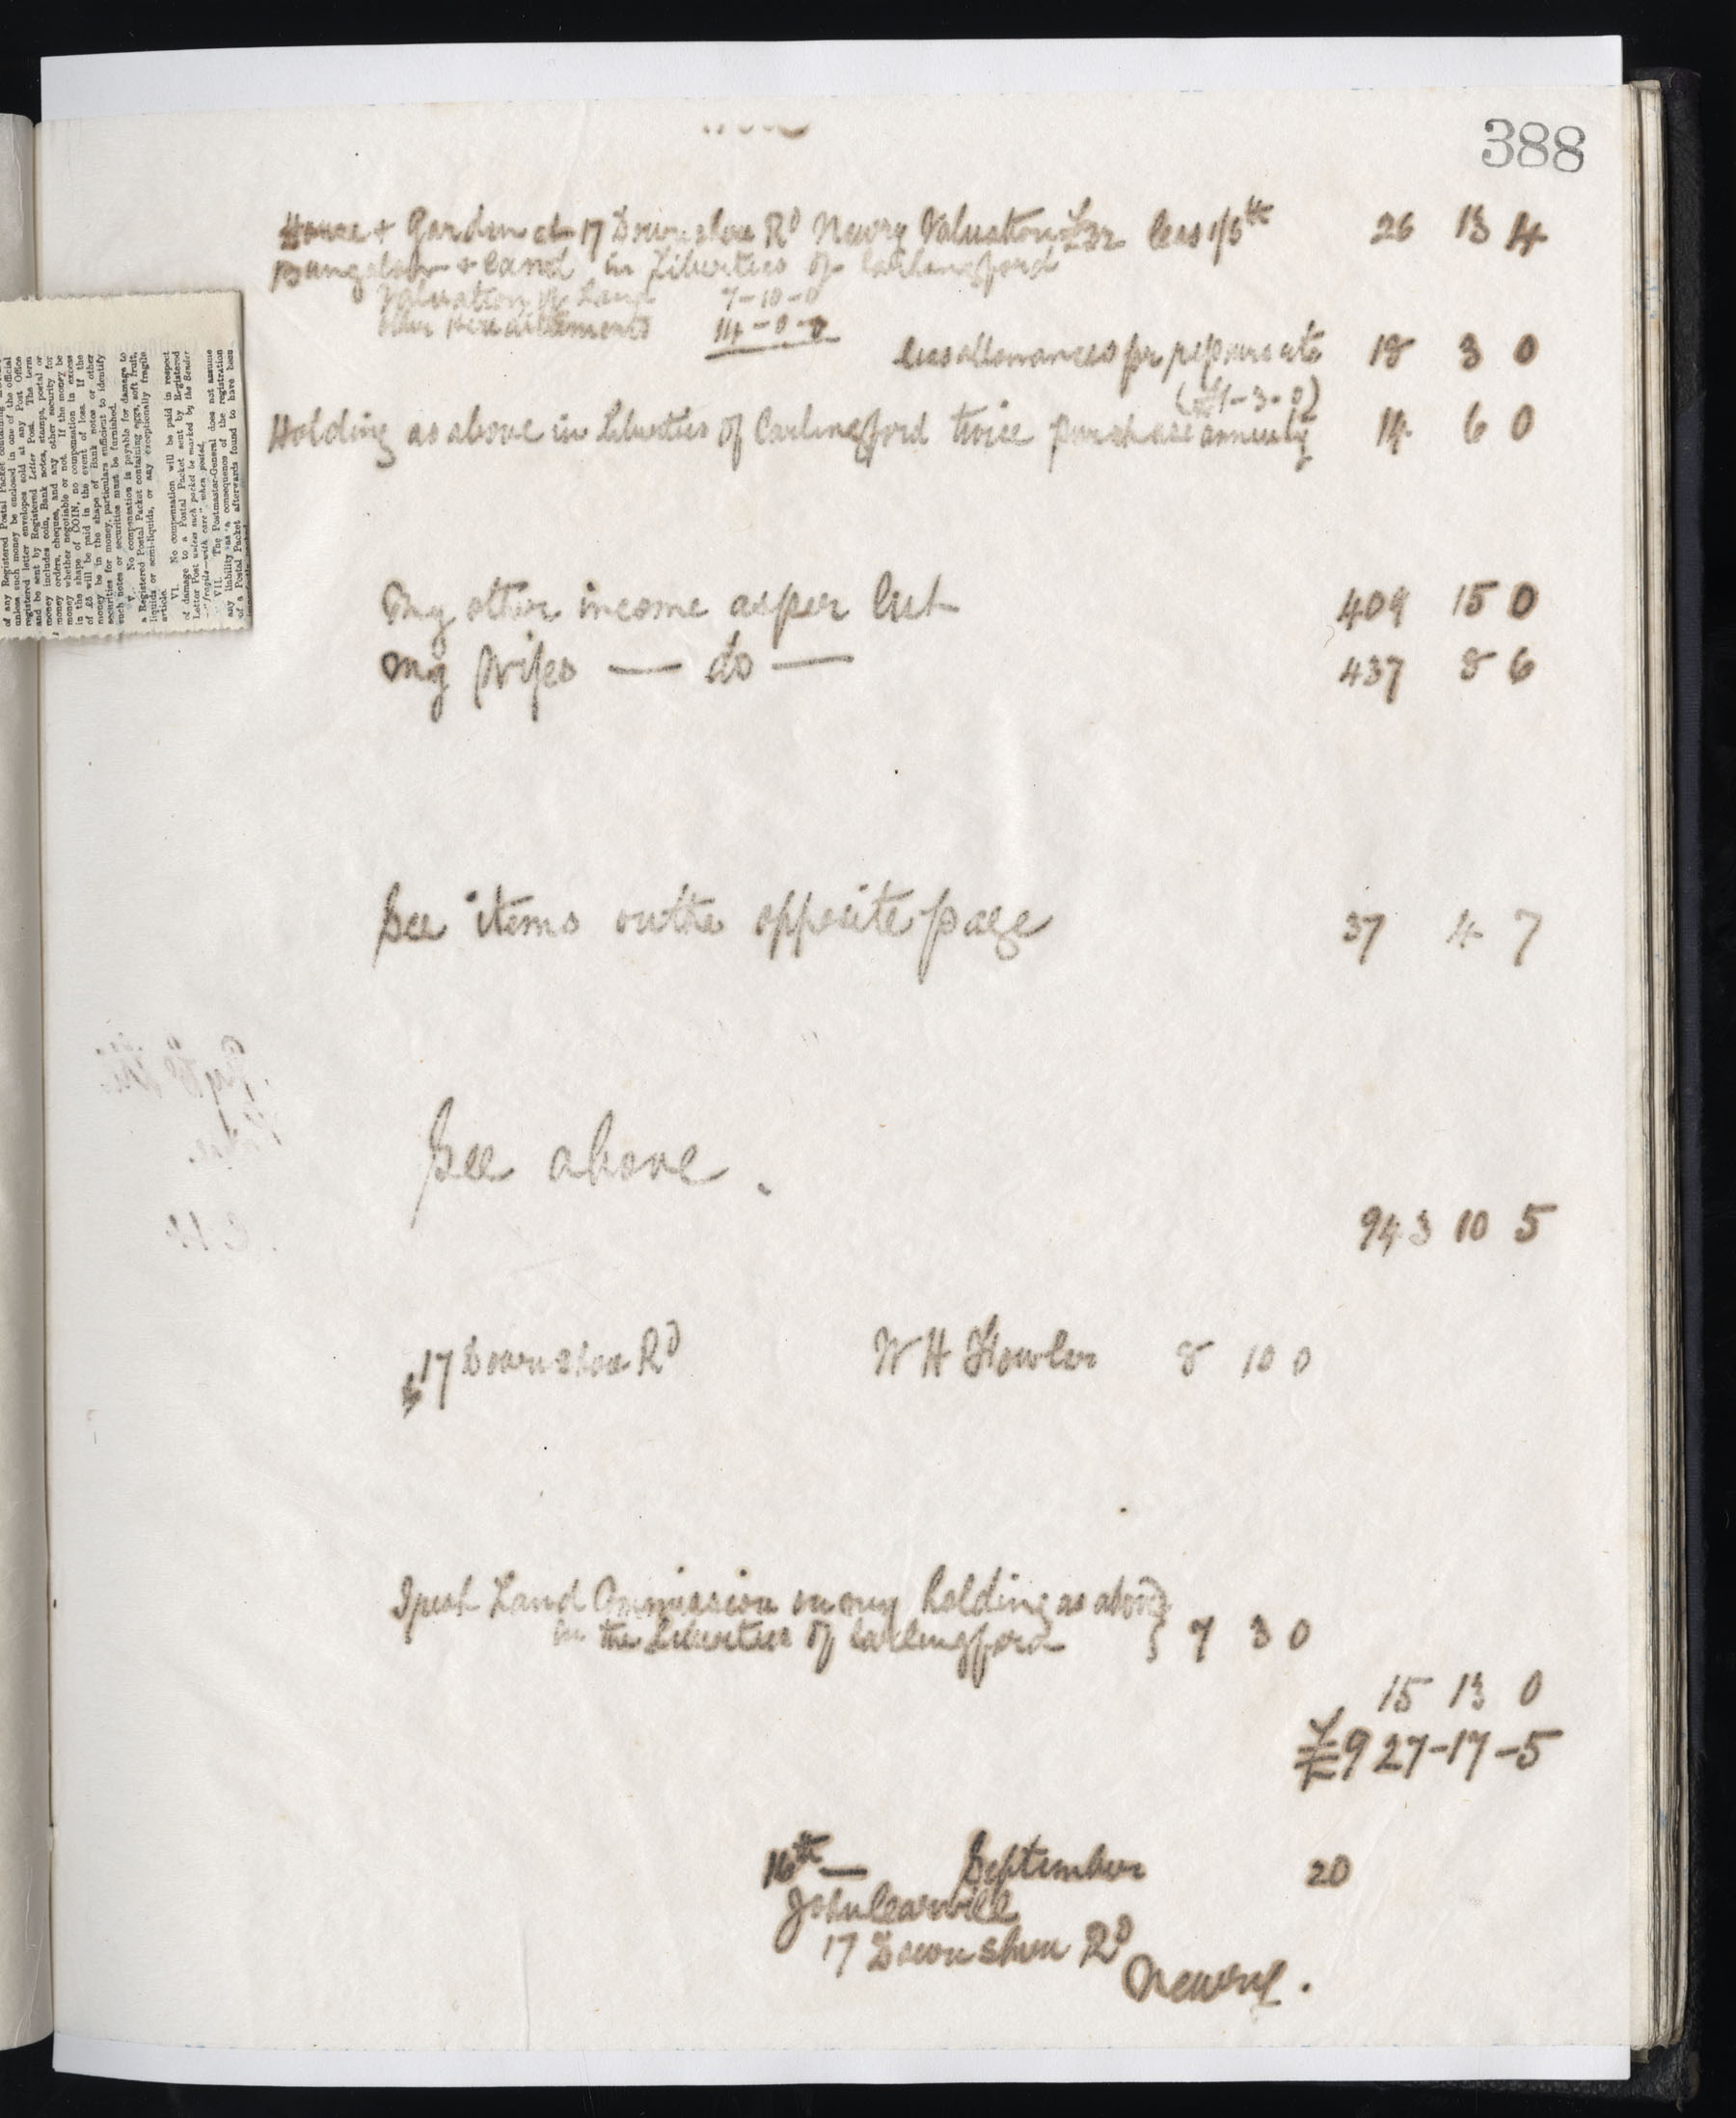 388
House + Garden at 17 Downshire Rd Newry Valuation £32 less 1/6th 26 13 4
Bungalow + Land in Liberties of Carlingford
Valuation of Land 7-10-0
Other Hereditaments 14-0-0
less allowances for repairs etc 18 3 0
(£1-3-0)
Holding as above in Liberties of Carlingford twice purchase annuity 14 6 0
My other income as per list 409 15 0
My Wifes — do — 437 8 6
See items on the opposite page 37 4 7
See above.
943 10 5
17 Downshire Rd W H Fowler 8 10 0
Irish Land Commission on my holding as above
in the Liberties of Carlingford } 7 3 0
15 13 0
£927-17-5
16th — September 20
John Carvill
17 Downshire Rd
Newry.
of any Registered Postal Packet containing
unless such money be enclosed in one of the official
registered letter envelopes sold at any Post Office
and be sent by Registered Letter Post. The term
money includes coin, Bank notes, stamps, postal or
money orders, cheques, and any other security for
money whether negotiable or not. If the money be
in the shape of COIN, no compensation in excess
of £5 will be paid in the event of loss. If the
money be in the shape of Bank notes or other
securities for money, particulars sufficient to identify
such notes or securities must be furnished.
V. No compensation is payable for damage to
a Registered Postal Packet containing eggs, soft fruit,
liquids or semi-liquids, or any exceptionally fragile
article.
VI. No compensation will be paid in respect
of damage to a Postal Packet sent by Registered
Letter Post unless such packet be marked by the Sender
"fragile—with care" when posted.
VII. The Postmaster-General does not assume
any liability as a consequence of the registration
of a Postal Packet afterwards found to have been